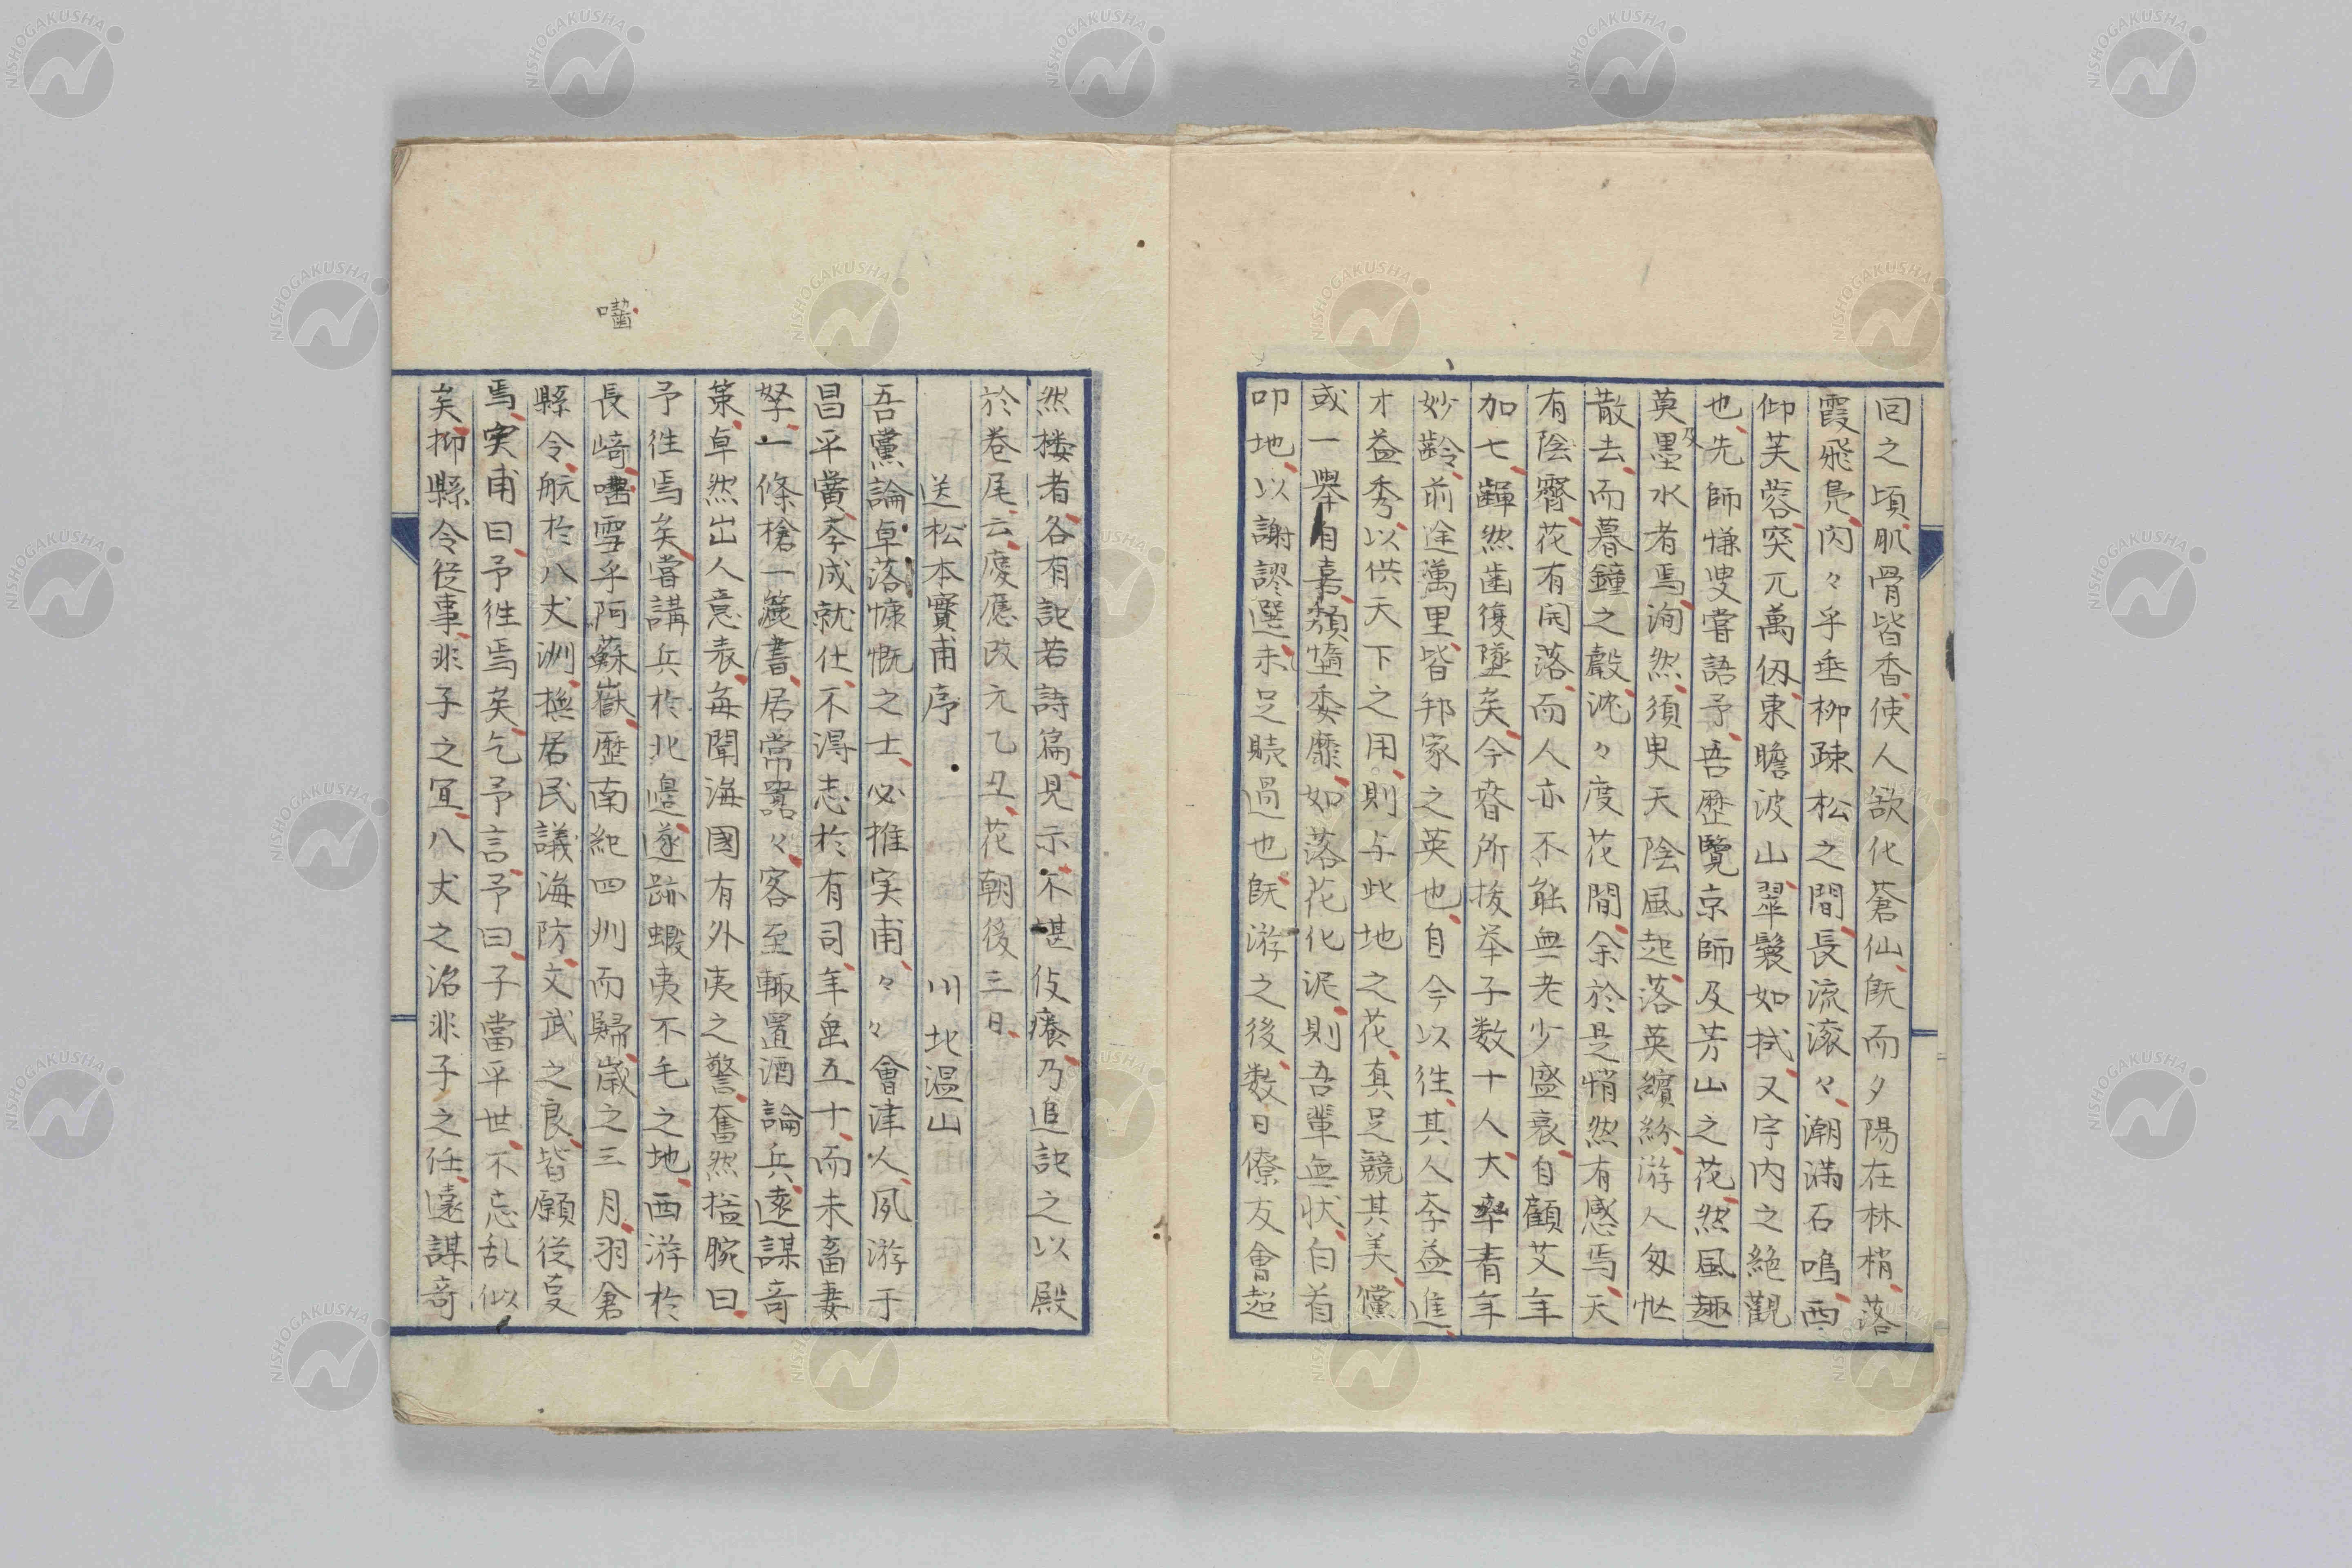 回之頃肌骨皆香使人欲化蒼仙既而夕陽在林梢落
霞飛鳧閃々乎垂柳疎松之間長流滾々潮満石鳴西
仰芙蓉突兀萬仭東瞻波山翠鬟如拭又宇内之絶觀
也先師慊叟嘗語予吾歴覽京師及芳山之花然風趣
莫及墨水者焉洵然須臾天陰風起落英繽紛游人匆忙
散去而暮鐘之聲沈々度花間余於是悄然有感焉天
有陰霽花有開落而人亦不能無老少盛衰自顧艾年
加七齳然歯復墜矣今春所拔举子数十人大率青年
妙齢前途萬里皆邦家之英也自今以往其人李益進
才益秀以供天下之用則与此地之花真足競其美儻
或一擧自喜頽堕委靡如落花化泥則吾輩無状白首
叩地以謝謬選未足贖過也既游之後数日僚友會超
然楼者各有記若詩篇見示不堪伎癢乃追記之以殿
於巻尾云慶應改元乙丑花朝後三日
送松本實甫序 川北温山
吾黨論卓落慷慨之士必推実甫々々會津人夙游于
昌平黌斈成就仕不得志於有司年垂五十而未畜妻
孥一條槍一簏書居常嚣々客至輙置酒論兵遠謀奇
策卓然出人意表毎聞海國有外夷之警奮然搤腕曰
予徃焉矣嘗講兵於北邊遂跡蝦夷不毛之地西游於
長崎嚙雪乎阿蘇嶽歴南紀四州而歸歳之三月羽倉
縣令航於八丈洲撫居民議海防文武之良皆願從焉
焉実甫曰予徃焉矣乞予言予曰子當平世不忘乱似
矣抑縣令從事非子之冝八丈之治非子之任遠謀奇
嚙
NISHOGAKUSHA